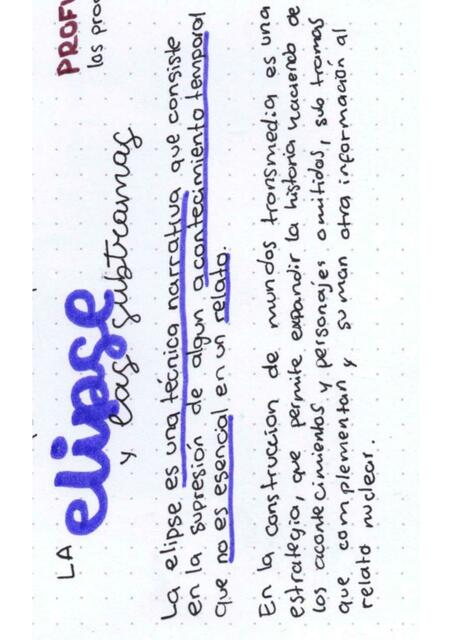 LA
elipse
y las subtramas
La elipse es una técnica narrativa que consiste
en la supresión de algun acontecimiento temporal
que no es esencial en un relato.
En la construcción de mundos transmedia es una
estrategia, que permite expandir la historia haciendo de
los acontecimientos y personajes omitidos, sub tramas
que complementan y suman otra información al
relato nuclear.
los